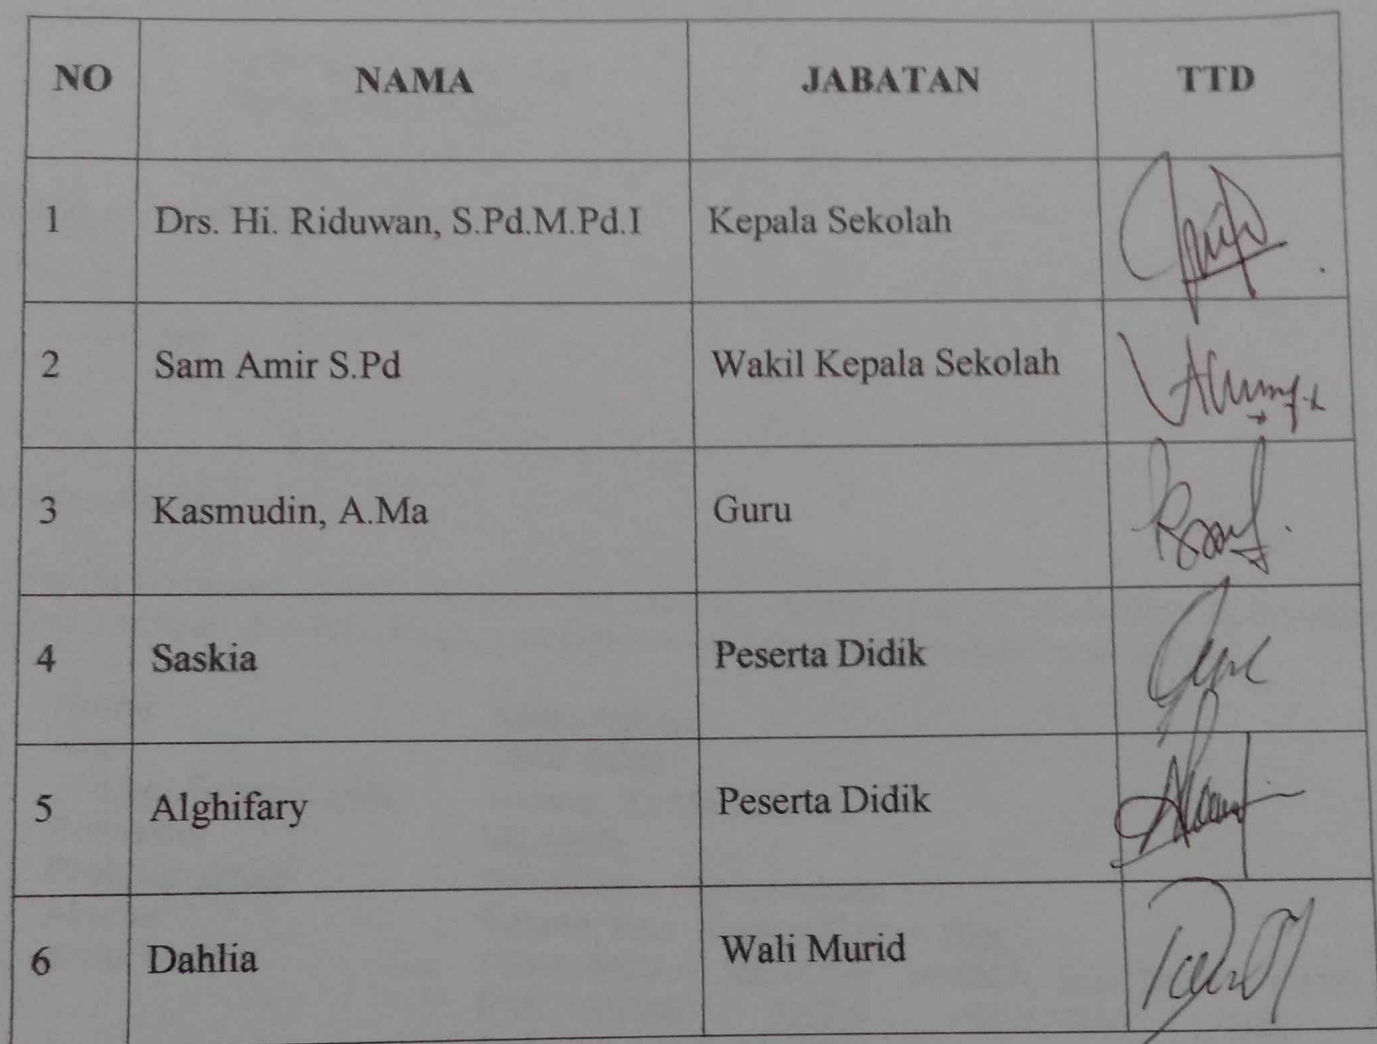 NO NAMA JABATAN TTD
1 Drs. Hi. Riduwan, S.Pd.M.Pd.I Kepala Sekolah
2 Sam Amir S.Pd Wakil Kepala Sekolah
3 Kasmudin, A.Ma Guru
4 Saskia Peserta Didik
5 Alghifary Peserta Didik
6 Dahlia Wali Murid